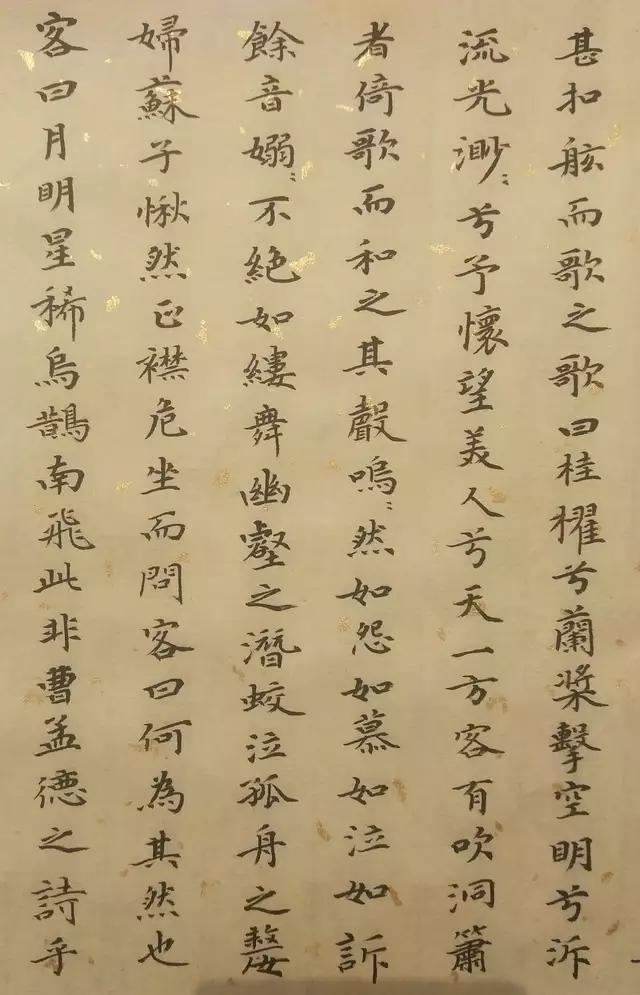 甚扣舷而歌之歌曰桂櫂兮蘭槳擊空明兮泝
流光渺〻兮予懷望美人兮天一方客有吹洞簫
者倚歌而和之其聲嗚〻然如怨如慕如泣如訴
餘音嫋〻不絕如縷舞幽壑之潛蛟泣孤舟之嫠
婦蘇子愀然正襟危坐而問客曰何為其然也
客曰月明星稀烏鵲南飛此非曹孟德之詩乎